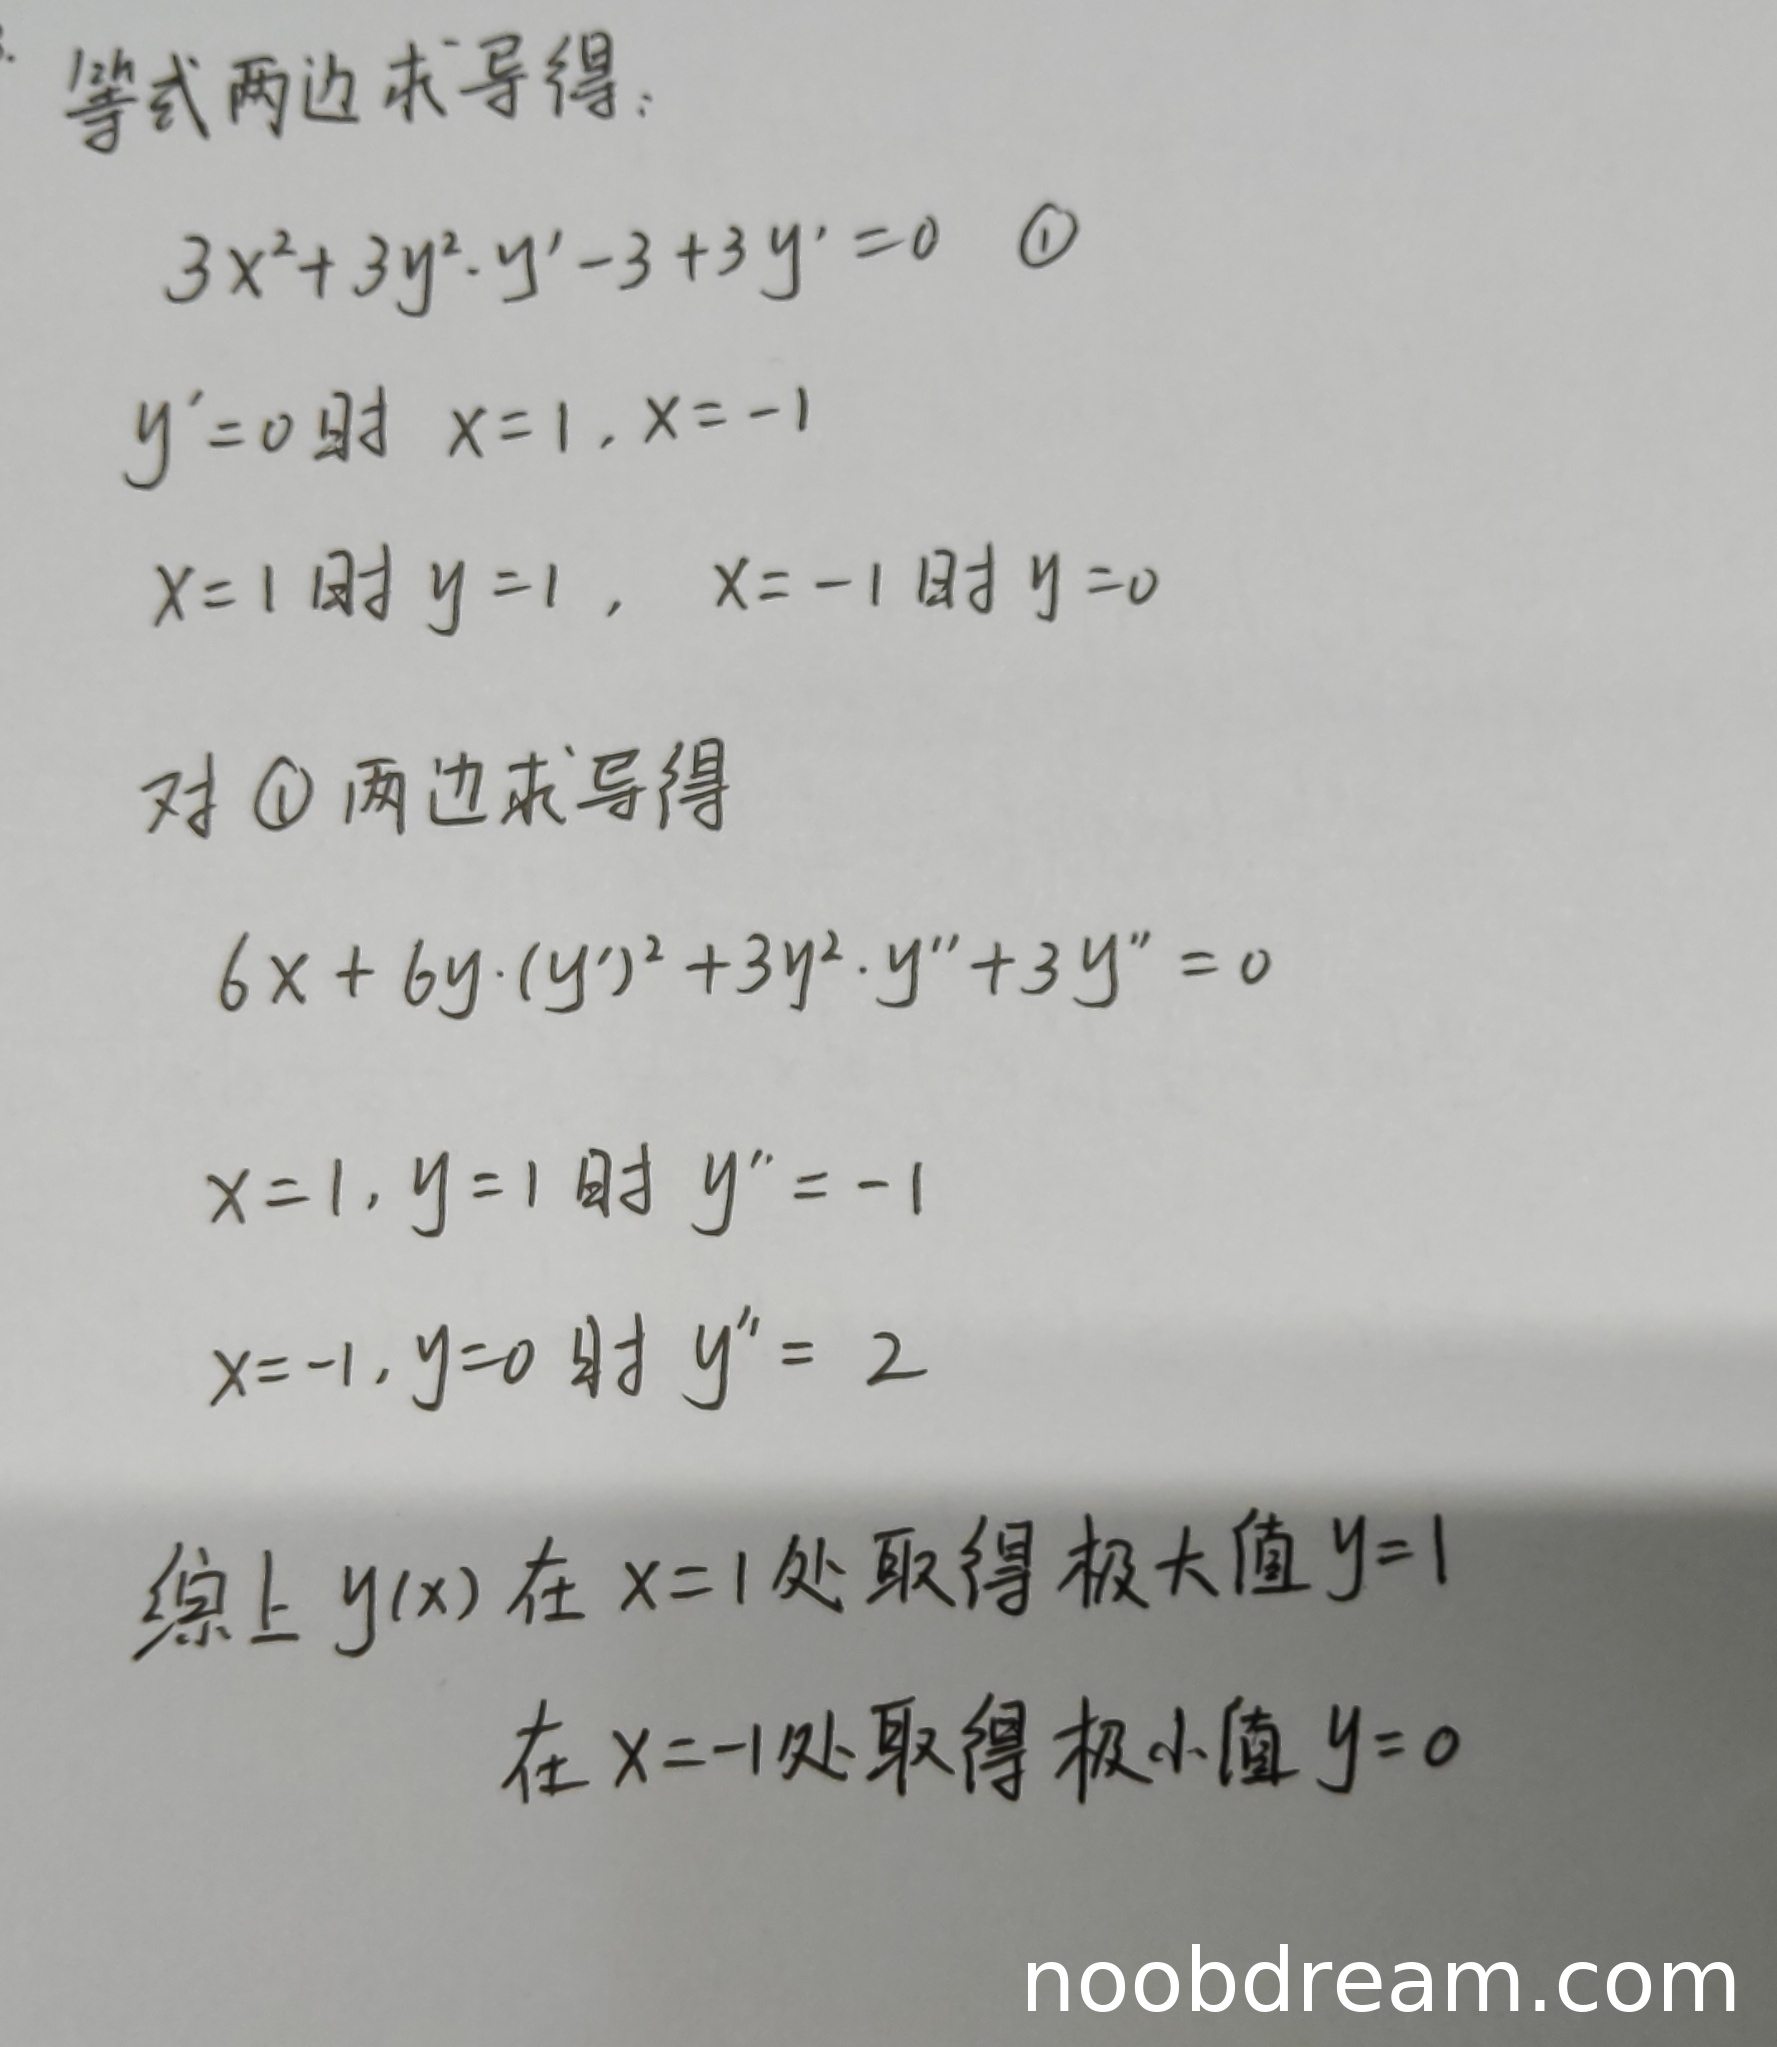 等式两边求导得:
3x²+3y²·y'-3+3y'=0 ①
y'=0时 x=1, x=-1
x=1时 y=1, x=-1时 y=0
对①两边求导得
6x+6y·(y')²+3y²·y''+3y''=0
x=1, y=1时 y''=-1
x=-1, y=0时 y''=2
综上 y(x) 在 x=1处取得极大值 y=1
在 x=-1处取得极小值 y=0
noobdream.com